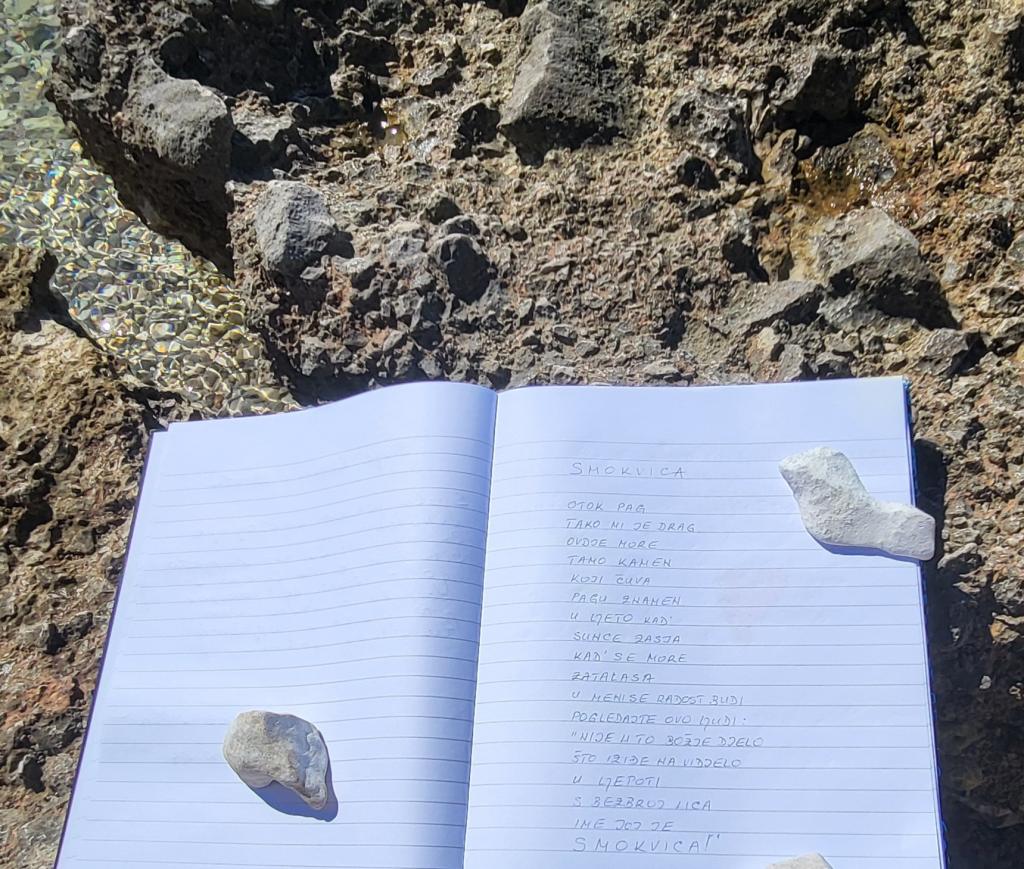 SMOKVICA
OTOK PAG
TAKO MI JE DRAG
OVDJE MORE
TAMO KAMEN
KOJI ČUVA
PAGU ZNAMEN
U LJETO KAD'
SUNCE ZASJA
KAD' SE MORE
ZATALASA
U MENI SE RADOST BUDI
POGLEDAJTE OVO LJUDI:
"NIJE LI TO BOŽJE DJELO
ŠTO IZIĐE NA VIDJELO
U LJEPOTI
S BEZBROJ LICA
IME JOJ JE
SMOKVICA!"